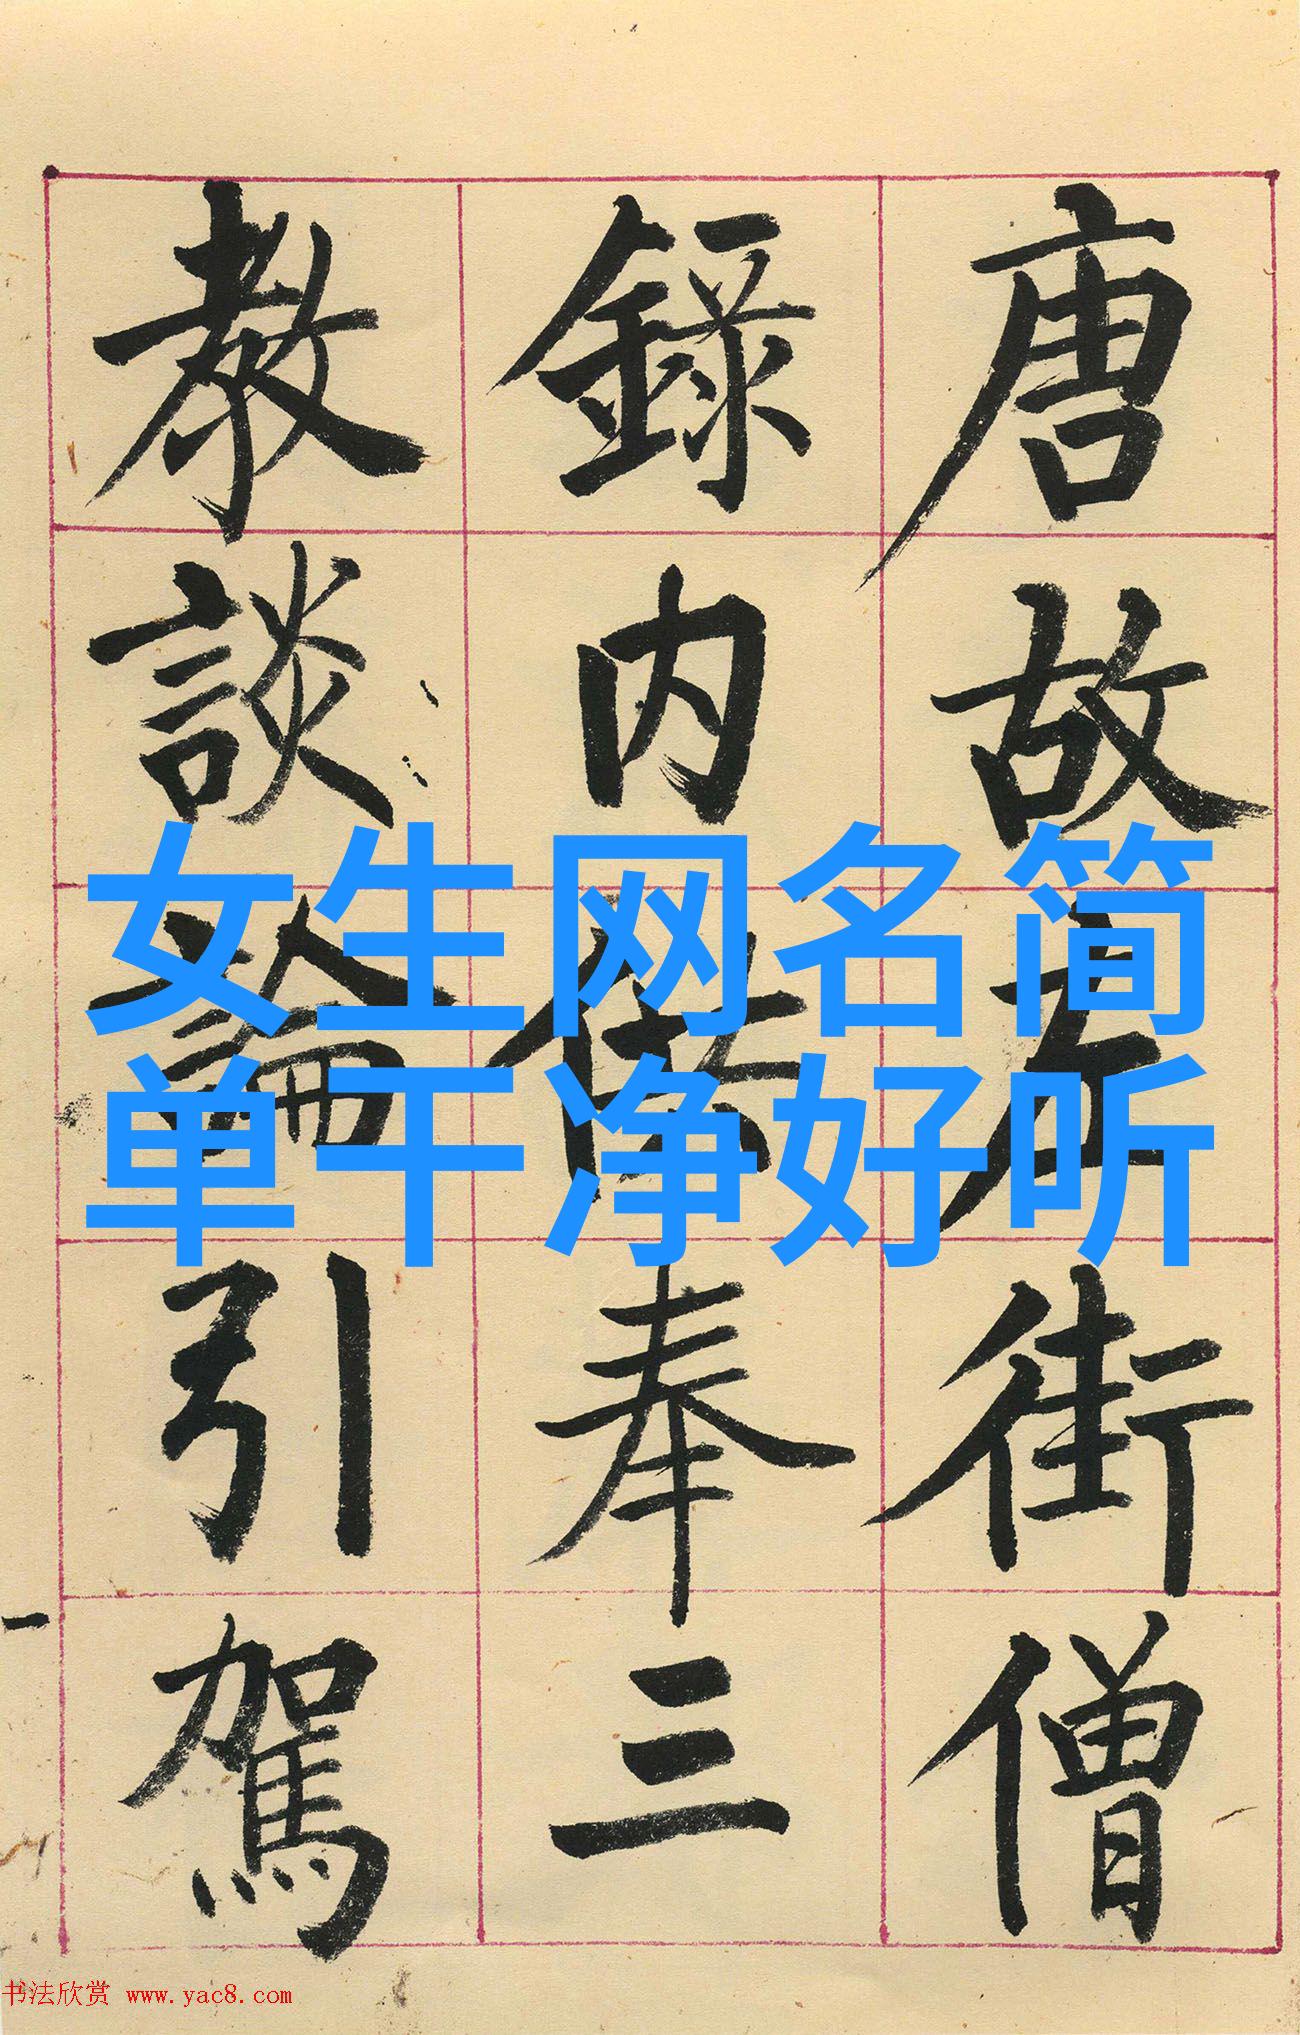 唐故左街僧
録内供奉三
教談論引駕
女生网名简
单干净好听
书法欣赏 www.yac8.com